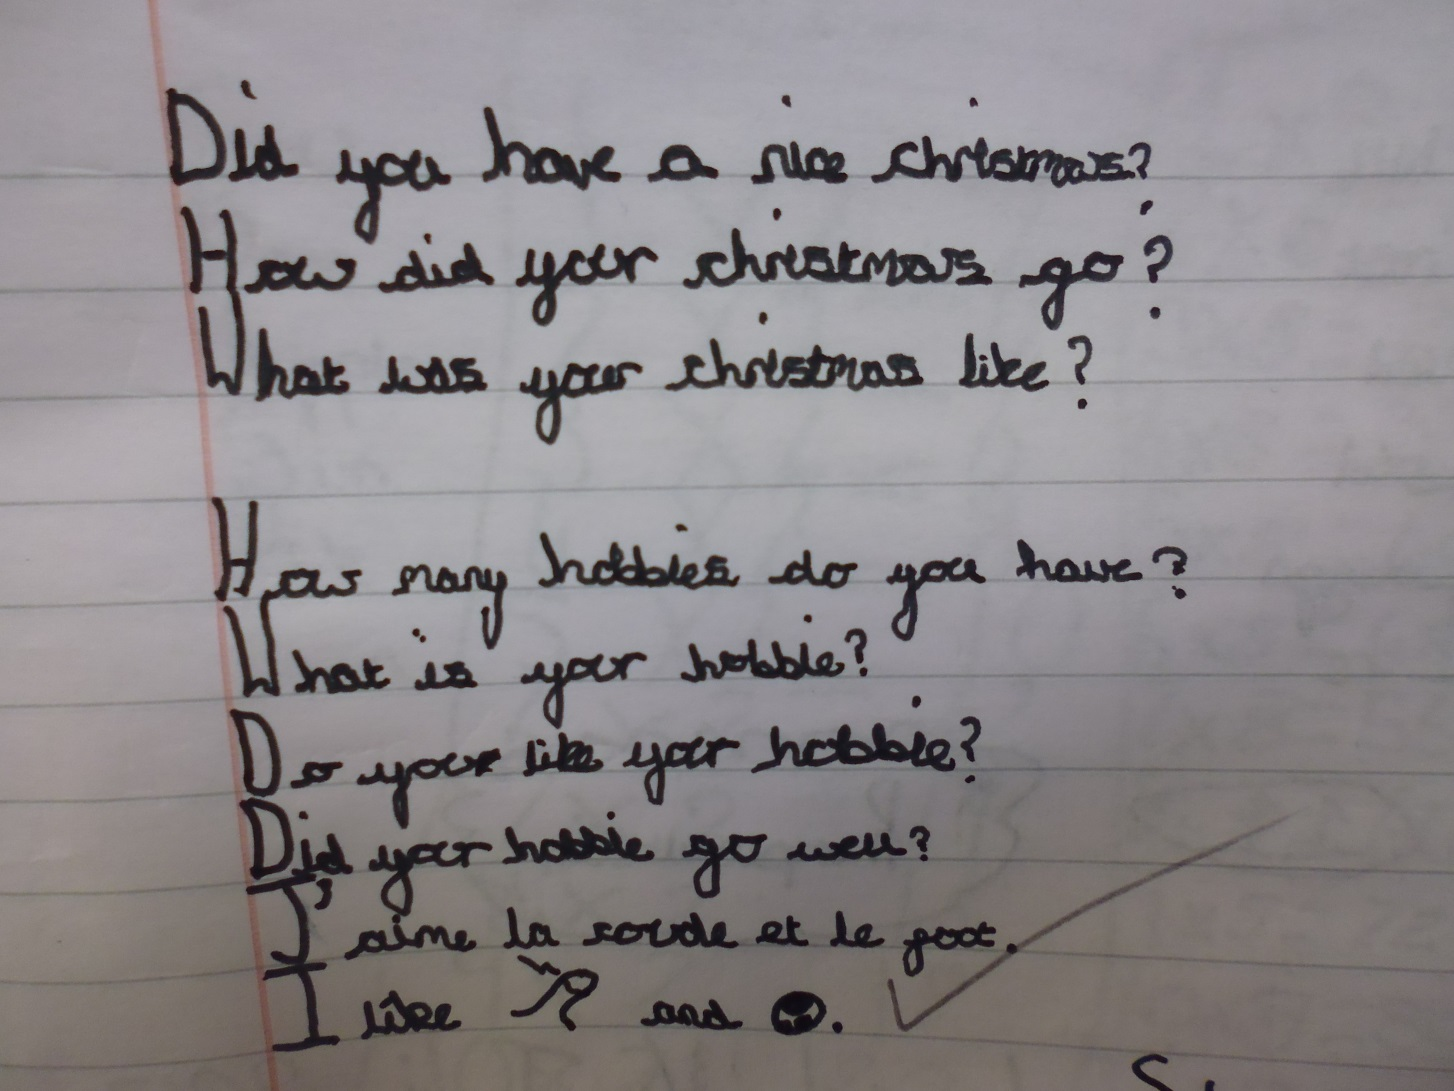 Did you have a nice christmas?
How did your christmas go?
What was your christmas like?
How many hobbies do you have?
What is your hobbie?
Do your like your hobbie?
Did your hobbie go well?
J'aime la corde et le foot.
I like and